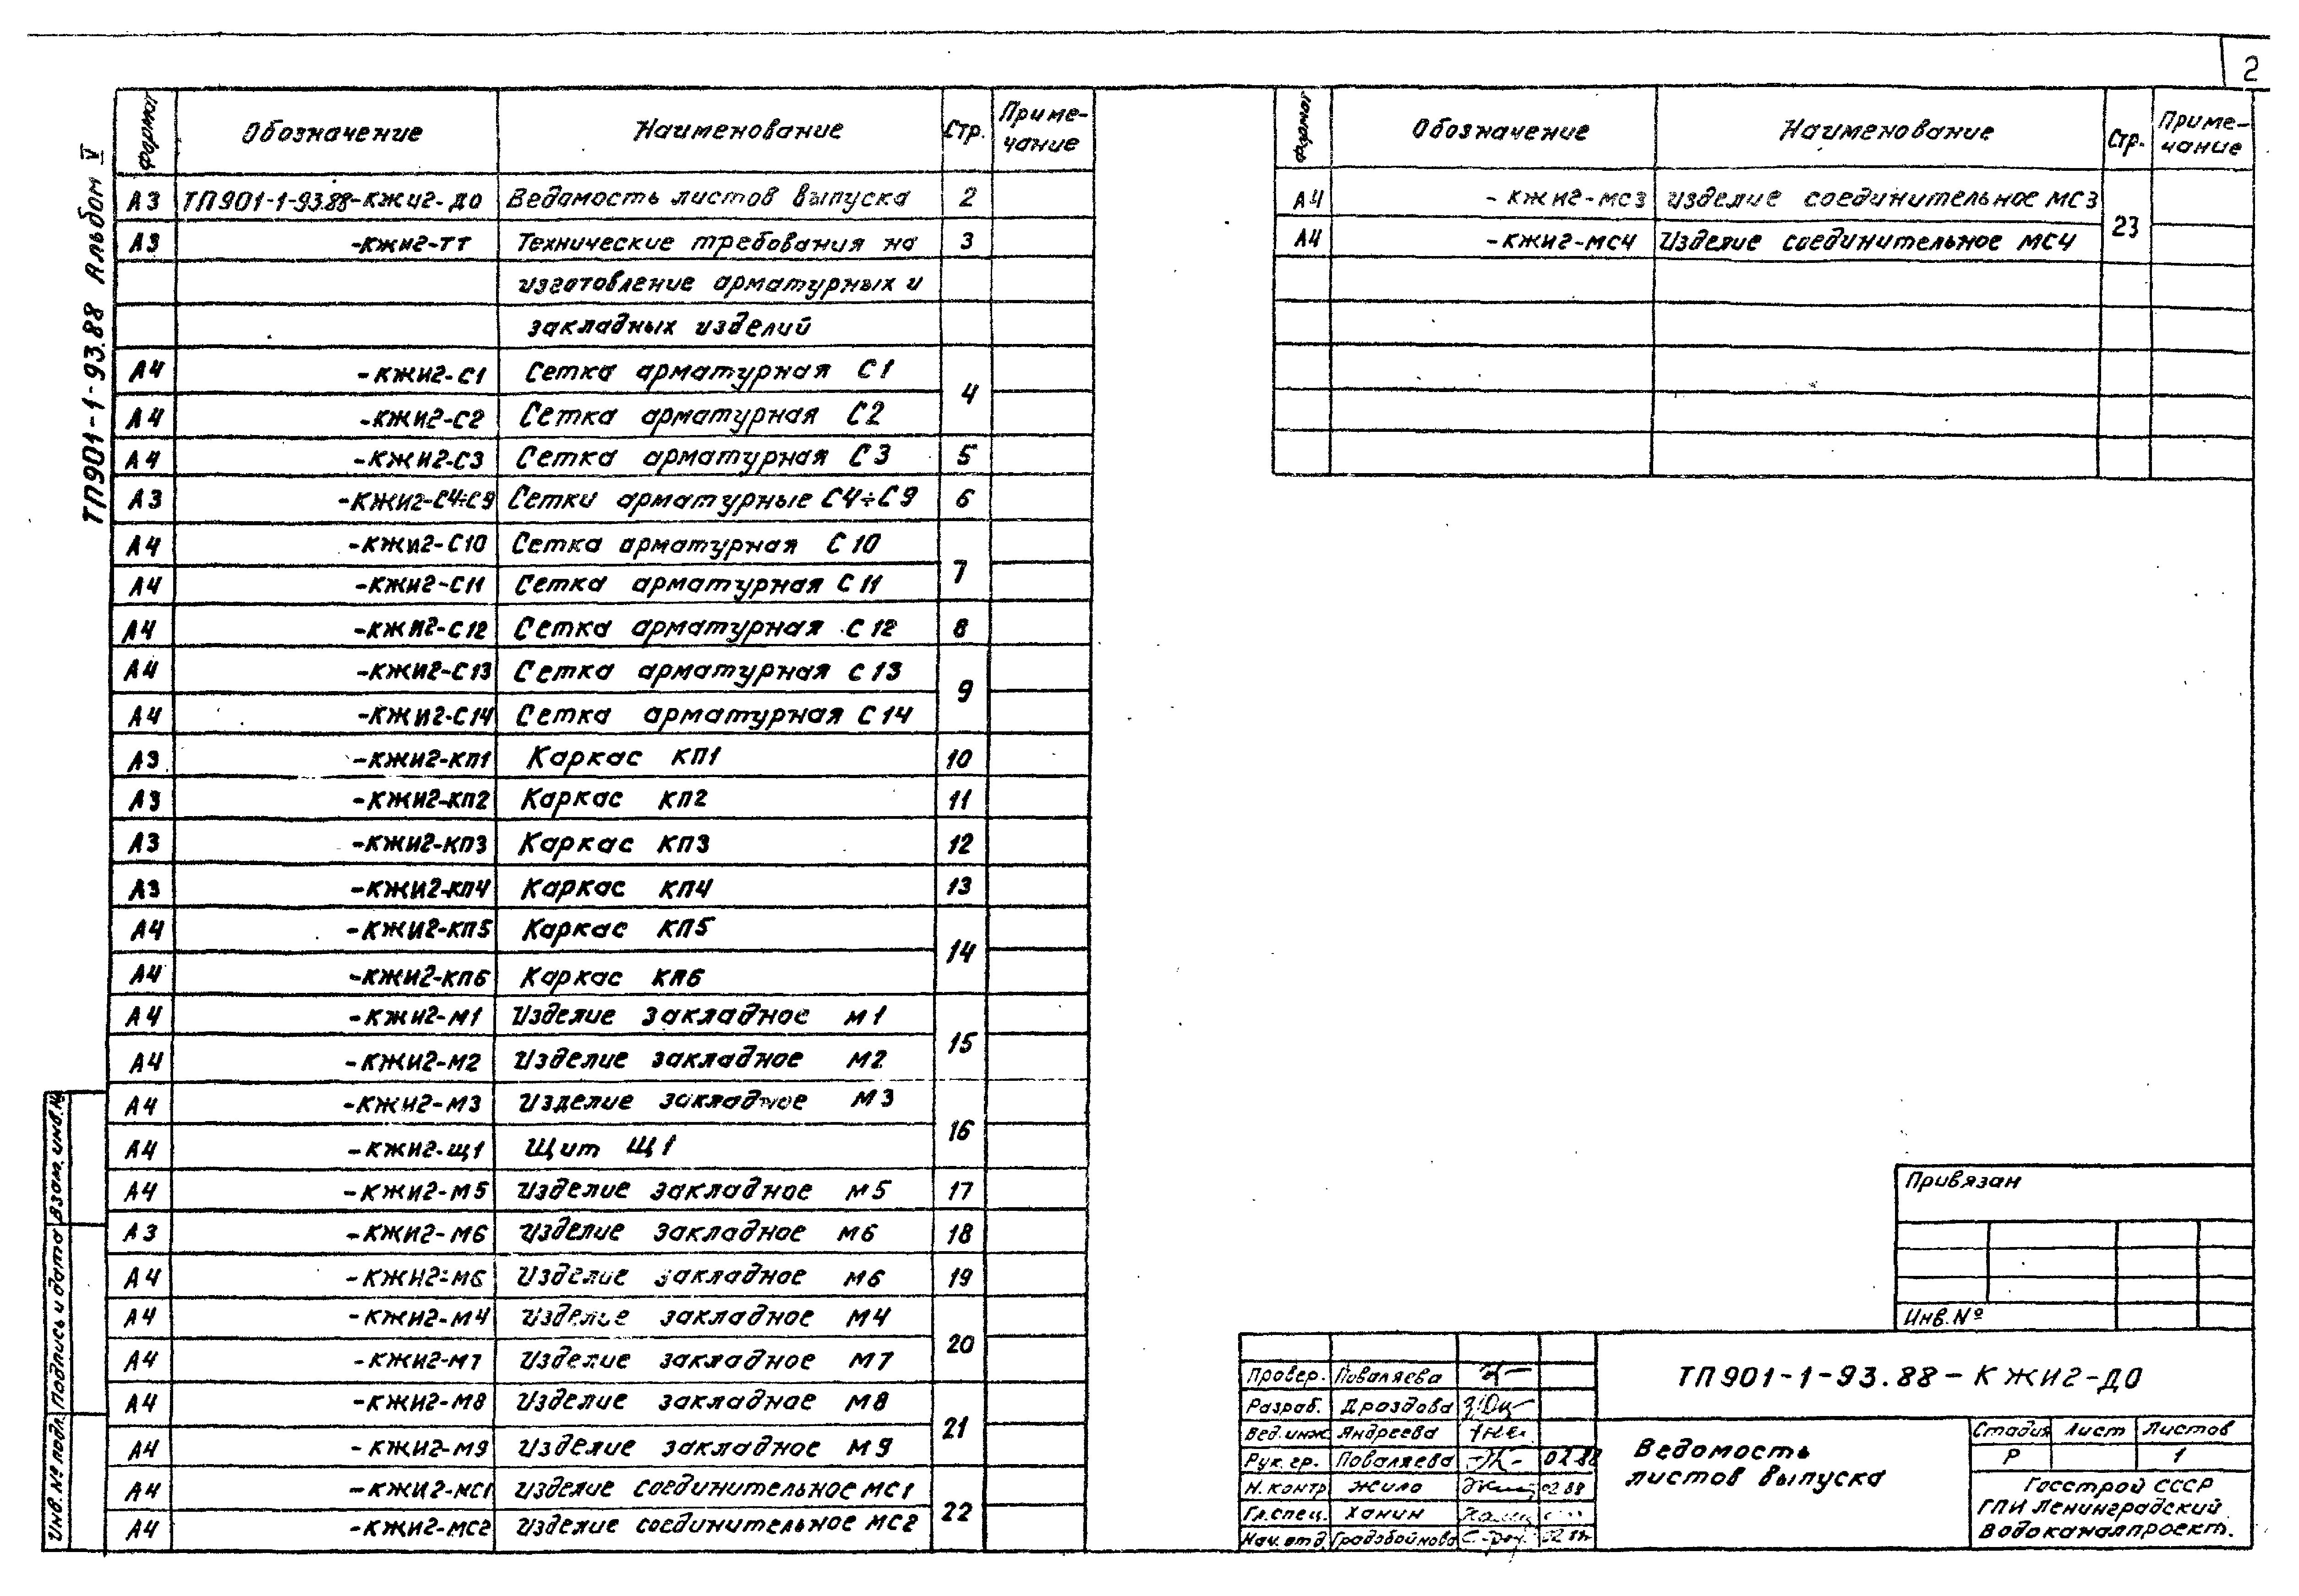 2
ТП901-1-93.88 Альбом V
Формат Обозначение Наименование Стр. Приме-
чание
А3 ТП901-1-93.88-КЖИ2-ДО Ведомость листов выпуска 2
А3 -КЖИ2-ТТ Технические требования на 3
изготовление арматурных и
закладных изделий
А4 -КЖИ2-С1 Сетка арматурная С1
4
А4 -КЖИ2-С2 Сетка арматурная С2
А4 -КЖИ2-С3 Сетка арматурная С3 5
А3 -КЖИ2-С4÷С9 Сетки арматурные С4÷С9 6
А4 -КЖИ2-С10 Сетка арматурная С10
7
А4 -КЖИ2-С11 Сетка арматурная С11
А4 -КЖИ2-С12 Сетка арматурная С12 8
А4 -КЖИ2-С13 Сетка арматурная С13
9
А4 -КЖИ2-С14 Сетка арматурная С14
А3 -КЖИ2-КП1 Каркас КП1 10
А3 -КЖИ2-КП2 Каркас КП2 11
А3 -КЖИ2-КП3 Каркас КП3 12
А3 -КЖИ2-КП4 Каркас КП4 13
А4 -КЖИ2-КП5 Каркас КП5
14
А4 -КЖИ2-КП6 Каркас КП6
А4 -КЖИ2-М1 Изделие закладное М1
15
А4 -КЖИ2-М2 Изделие закладное М2
А4 -КЖИ2-М3 Изделие закладное М3
16
А4 -КЖИ2-Щ1 Щит Щ1
А4 -КЖИ2-М5 Изделие закладное М5 17
А3 -КЖИ2-М6 Изделие закладное М6 18
А4 -КЖИ2-М6 Изделие закладное М6 19
А4 -КЖИ2-М4 Изделие закладное М4
20
А4 -КЖИ2-М7 Изделие закладное М7
А4 -КЖИ2-М8 Изделие закладное М8
21
А4 -КЖИ2-М9 Изделие закладное М9
А4 -КЖИ2-МС1 Изделие соединительное МС1
22
А4 -КЖИ2-МС2 Изделие соединительное МС2
Инв. № подл. Подпись и дата Взам. инв. №
Формат Обозначение Наименование Стр. Приме-
чание
А4 -КЖИ2-МС3 Изделие соединительное МС3
23
А4 -КЖИ2-МС4 Изделие соединительное МС4
Привязан
Инв. №
Провер. Поваляева
Разраб. Дроздова
Вед. инж. Андреева
Рук. гр. Поваляева 02.88
Н. контр Жило 02.88
Гл. спец. Ханин
Нач. отд. Градобойнова
ТП901-1-93.88-КЖИ2-ДО
Ведомость
листов выпуска
Стадия Лист Листов
Р 1
Госстрой СССР
ГПИ Ленинградский
Водоканалпроект.